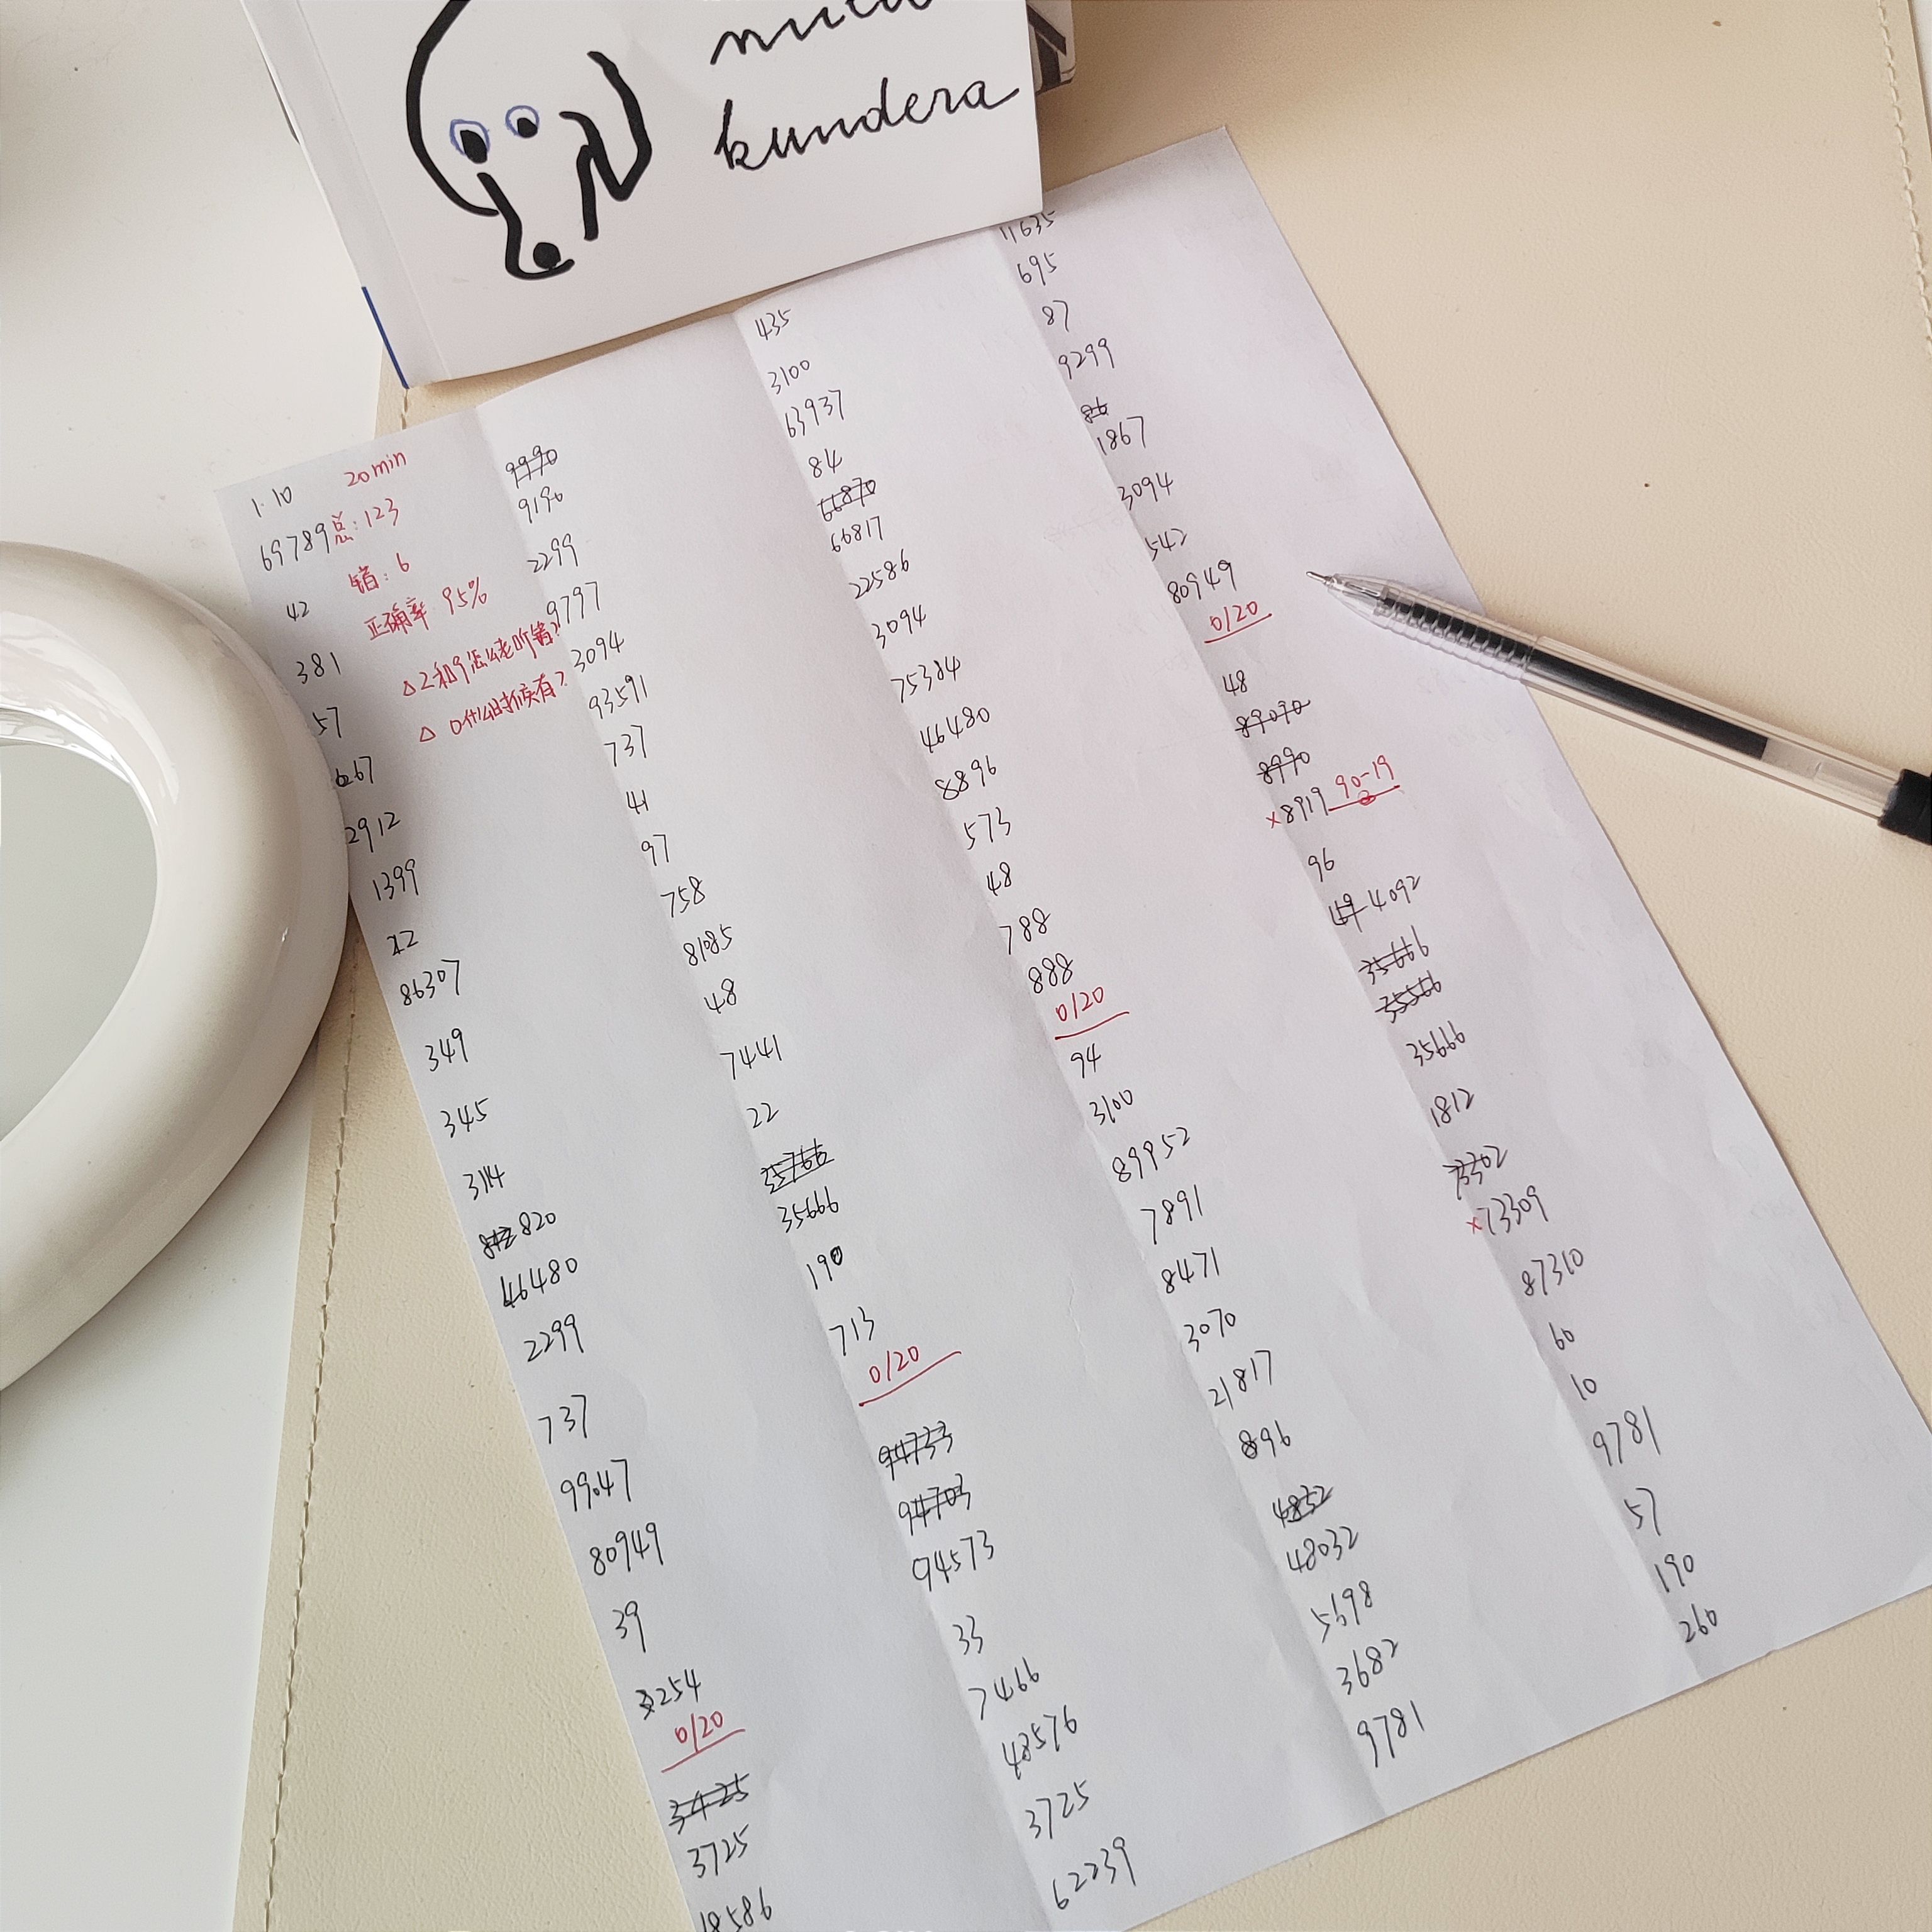 kundera
1.10
20min
69789
总:123
错:6
正确率 95%
△2和9怎么老听错?
△0什么时候有?
42
381
57
667
2912
1399
12
86307
349
345
3114
820
46480
2299
737
99047
80949
39
3254
0/20
3425
3725
18586
9990
9190
2299
9797
3094
93591
737
41
97
758
81085
48
7441
22
35766
35666
190
713
0/20
94733
94703
94573
33
7466
48576
3725
62239
435
3100
63937
84
66870
66817
22586
3094
75384
46480
8896
573
48
788
888
0/20
94
3100
89952
7891
8471
3070
21817
896
4832
48032
5698
3682
9781
11635
695
87
9299
86
1867
3094
542
80949
0/20
48
89090
8990
×8919 90-19
96
49 4092
35666
35566
35666
1812
73302
×73309
87310
60
10
9781
57
190
260